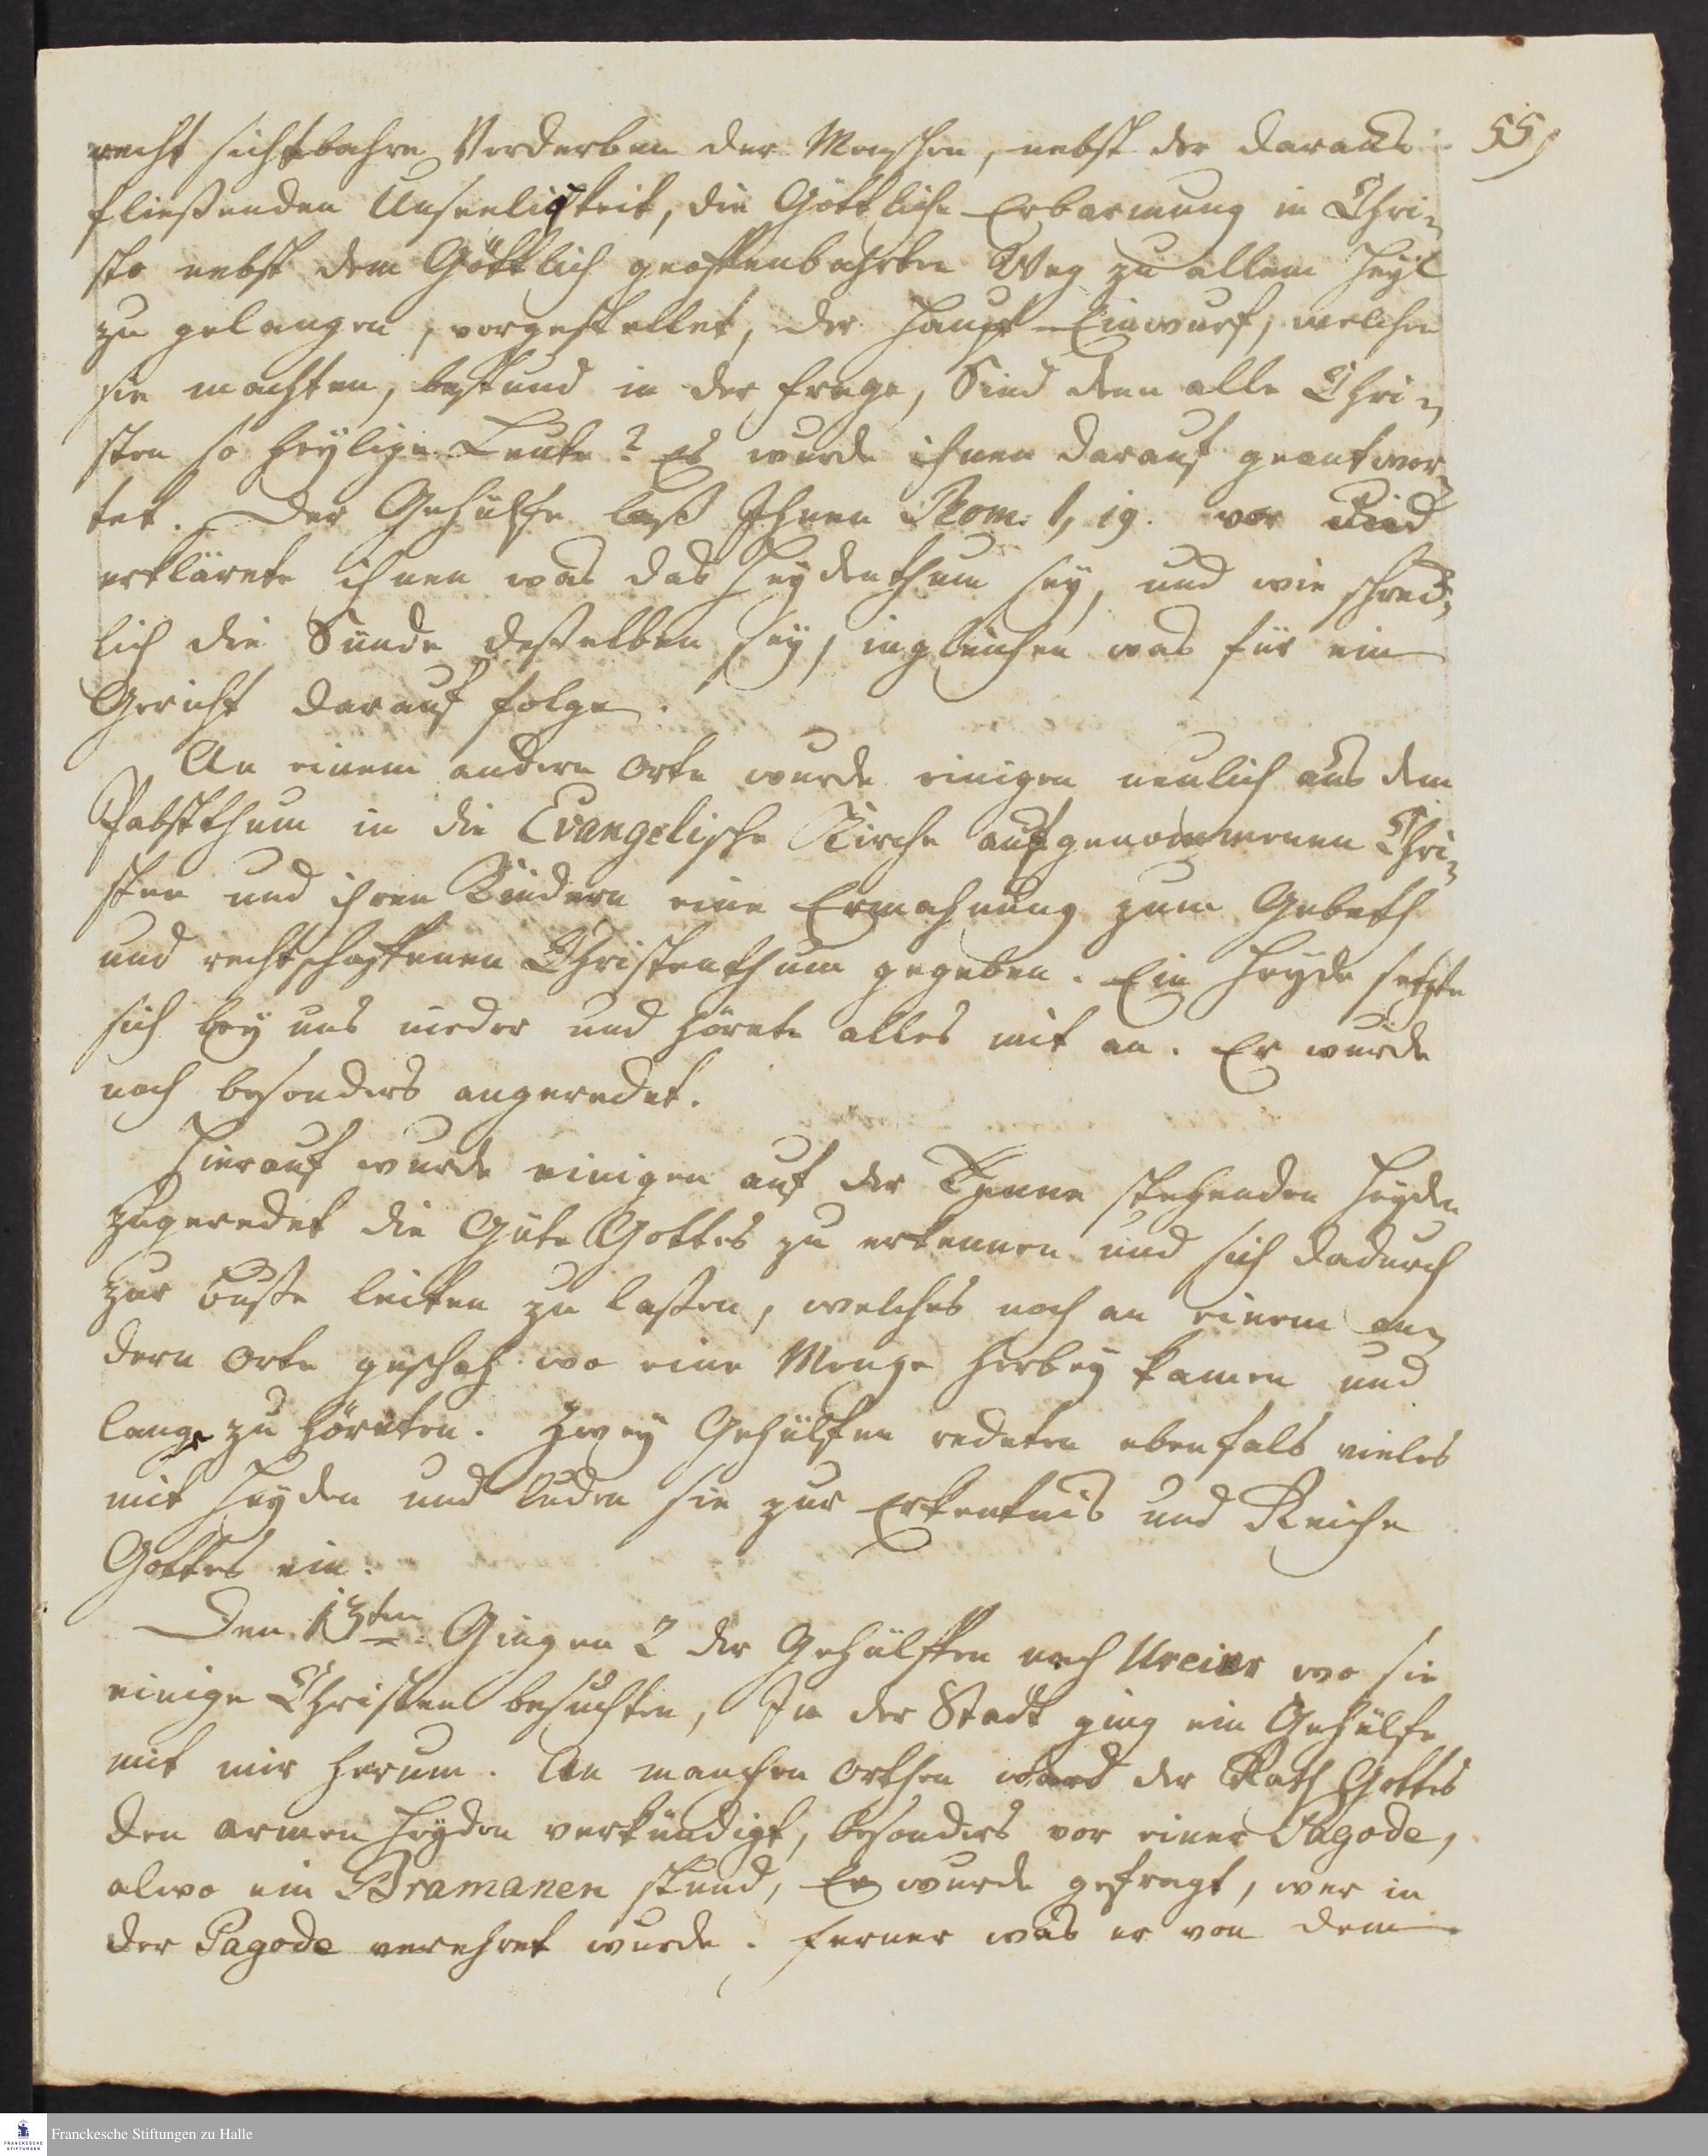 55)
recht sichtbahre Verderben der Menschen, nebst der daraus
fließenden Unseeligkeit, die Göttliche Erbarmung in Chri-
sto nebst dem Göttlich geoffenbahrten Weg zu allem Heyl
zu gelangen, vorgestellet, der Haupt-Einwurf, welchen
sie machten, bestund in der Frage, Sind denn alle Chri-
sten so heylige Leute? Es wurde ihnen darauf geantwor-
tet. Der Gehülfe laß Ihnen Rom: 1, 19. vor und
erklärete ihnen was das Heydenthum sey, und wie schreck-
lich die Sünde deßelben sey, ingleichen was für ein
Gericht darauf folge.
An einem andern Orte wurde einigen neulich aus dem
Pabstthum in die Evangelische Kirche aufgenommenen Chri-
sten und ihren Kindern eine Ermahnung zum Gebeth
und rechtschaffenen Christenthum gegeben. Ein Heyde setzte
sich bey uns nieder und hörete alles mit an. Er wurde
noch besonders angeredet.
Hierauf wurde einigen auf der Tenne stehenden Heyden
zugeredet die Güte Gottes zu erkennen und sich dadurch
zur Buße leiten zu laßen, welches noch an einem an-
dern Orte geschah wo eine Menge herbey kamen und
lange zu höreten. Zwey Gehülfen redeten ebenfals vieles
mit Heyden und luden sie zur Erkentnis und Reiche
Gottes ein.
Den 13ten Gingen 2 der Gehülffen nach Ureiur wo sie
einige Christen besuchten, In der Stadt ging ein Gehülfe
mit mir herum. An manchen Orthen ward der Rath Gottes
den armen Heyden verkündigt, besonders vor einer Pagode,
alwo ein Bramanen stund, Er wurde gefragt, wer in
der Pagode verehret wurde. Ferner was er von dem
Franckesche Stiftungen zu Halle
FRANCKESCHE
STIFTUNGEN